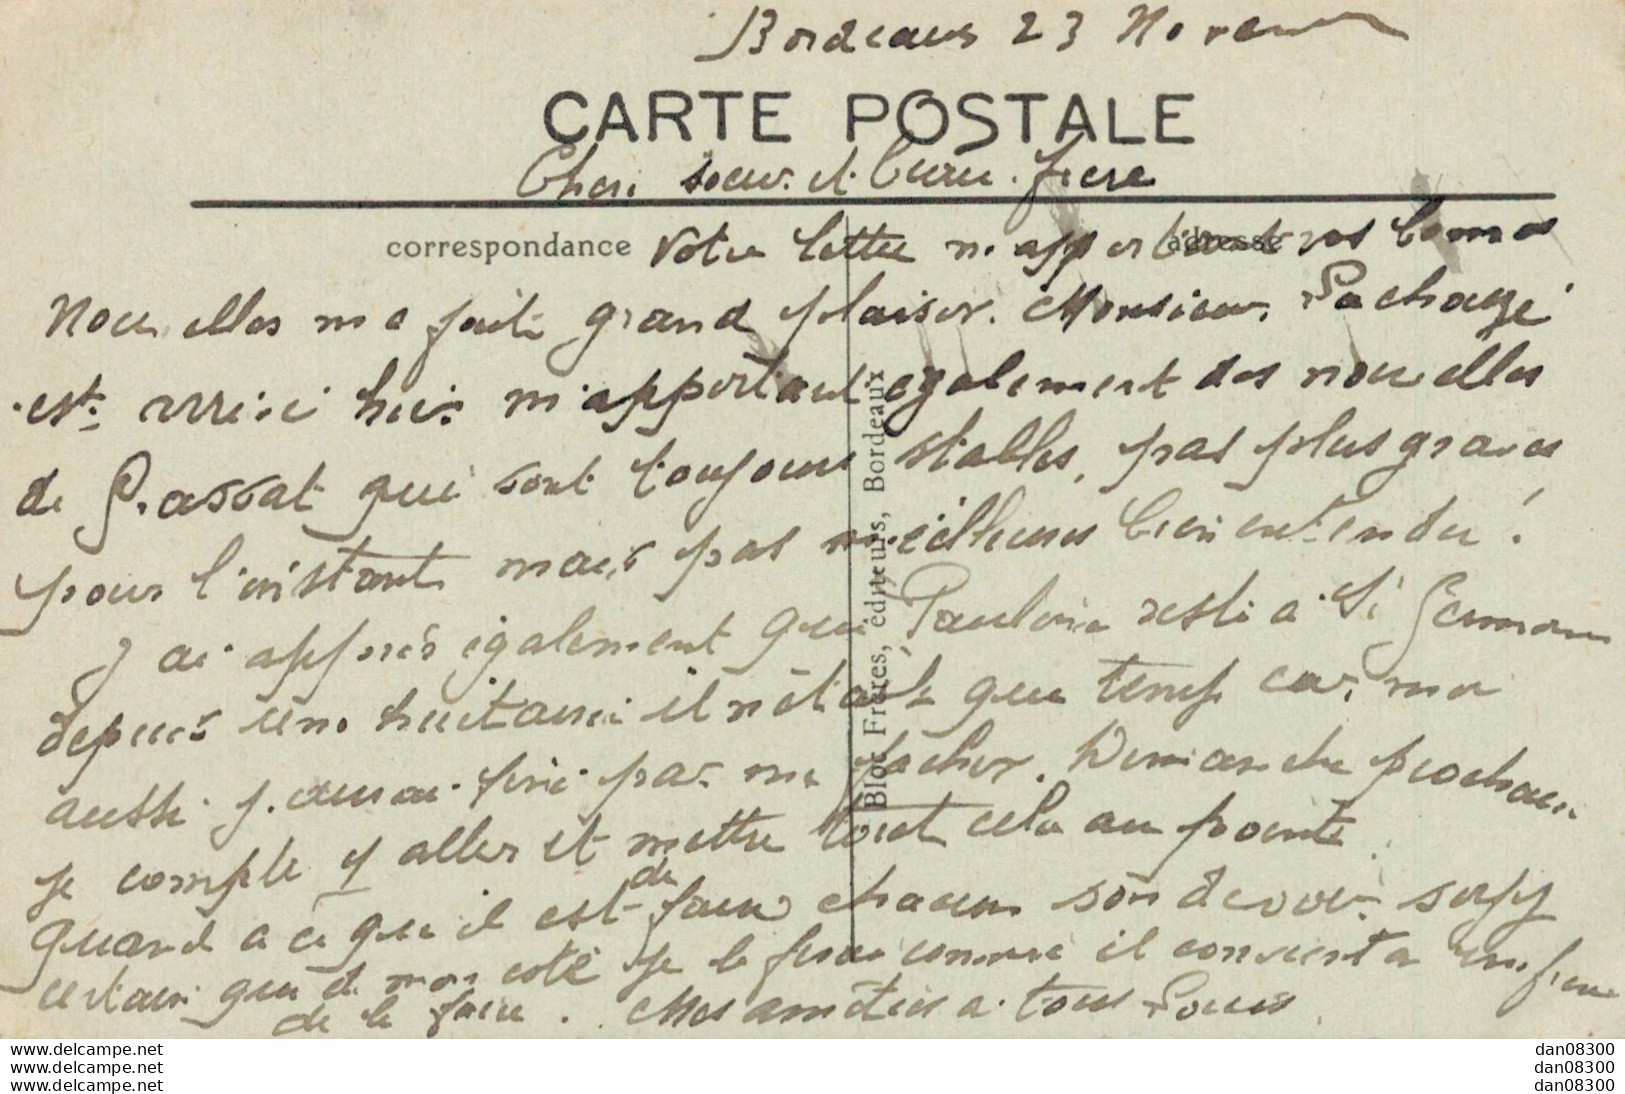 Bordeaux 23 Novem
CARTE POSTALE
Chère soeur et beau-frère
correspondance Votre lettre m'apportant vos bonnes
adresse
Nouvelles me faite grand plaisir. Monsieur Pachazé
est arrivé hier m'apportant également des nouvelles
de Prassat qui sont toujours stables, pas plus graves
pour l'instant mais pas meilleures bien entendu !
J'ai appris également que Paulvin resté à St Germain
depuis une huitaine il n'était que temps car moi
aussi j'aurai fini par me fâcher. Dimanche prochain
je compte y aller et mettre tout cela au point.
Quand a ce qu'il est de faire chacun son devoir soyez
certain que de mon coté je le ferai comme il convient a un frère
de le faire. Mes amitiés a tous Louis
Bloc Frères, éditeurs, Bordeaux
www.delcampe.net
www.delcampe.net
www.delcampe.net
dan08300
dan08300
dan08300